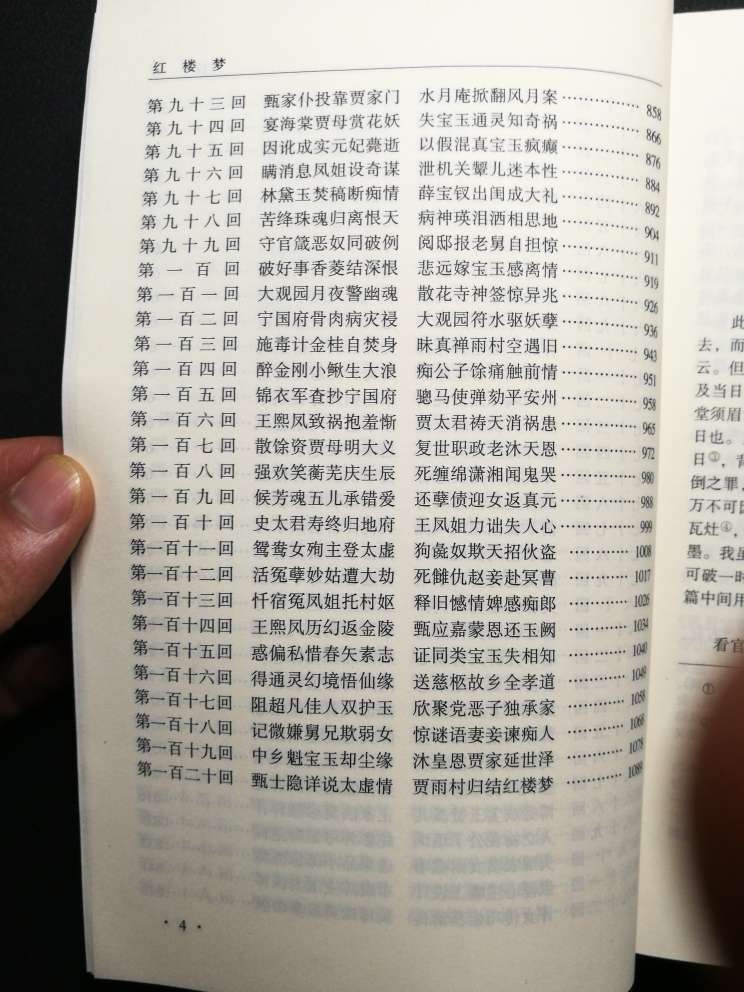 红楼梦
第九十三回 甄家仆投靠贾家门 水月庵掀翻风月案 ………… 858
第九十四回 宴海棠贾母赏花妖 失宝玉通灵知奇祸 ………… 866
第九十五回 因讹成实元妃薨逝 以假混真宝玉疯癫 ………… 876
第九十六回 瞒消息凤姐设奇谋 泄机关颦儿迷本性 ………… 884
第九十七回 林黛玉焚稿断痴情 薛宝钗出闺成大礼 ………… 892
第九十八回 苦绛珠魂归离恨天 病神瑛泪洒相思地 ………… 904
第九十九回 守官箴恶奴同破例 阅邸报老舅自担惊 ………… 911
第一百回 破好事香菱结深恨 悲远嫁宝玉感离情 ………… 919
第一百一回 大观园月夜警幽魂 散花寺神签惊异兆 ………… 926
第一百二回 宁国府骨肉病灾祲 大观园符水驱妖孽 ………… 936
第一百三回 施毒计金桂自焚身 昧真禅雨村空遇旧 ………… 943
第一百四回 醉金刚小鳅生大浪 痴公子馀痛触前情 ………… 951
第一百五回 锦衣军查抄宁国府 骢马使弹劾平安州 ………… 958
第一百六回 王熙凤致祸抱羞惭 贾太君祷天消祸患 ………… 965
第一百七回 散馀资贾母明大义 复世职政老沐天恩 ………… 972
第一百八回 强欢笑蘅芜庆生辰 死缠绵潇湘闻鬼哭 ………… 980
第一百九回 候芳魂五儿承错爱 还孽债迎女返真元 ………… 988
第一百十回 史太君寿终归地府 王凤姐力诎失人心 ………… 999
第一百十一回 鸳鸯女殉主登太虚 狗彘奴欺天招伙盗 ………… 1008
第一百十二回 活冤孽妙姑遭大劫 死雠仇赵妾赴冥曹 ………… 1017
第一百十三回 忏宿冤凤姐托村妪 释旧憾情婢感痴郎 ………… 1026
第一百十四回 王熙凤历幻返金陵 甄应嘉蒙恩还玉阙 ………… 1034
第一百十五回 惑偏私惜春矢素志 证同类宝玉失相知 ………… 1040
第一百十六回 得通灵幻境悟仙缘 送慈柩故乡全孝道 ………… 1049
第一百十七回 阻超凡佳人双护玉 欣聚党恶子独承家 ………… 1058
第一百十八回 记微嫌舅兄欺弱女 惊谜语妻妾谏痴人 ………… 1068
第一百十九回 中乡魁宝玉却尘缘 沐皇恩贾家延世泽 ………… 1078
第一百二十回 甄士隐详说太虚情 贾雨村归结红楼梦 ………… 1089
·4·
此
去，而
云。但
及当日
堂须眉
日也。
日③，背
倒之罪，
万不可因
瓦灶④，
墨。我虽
可破一时
篇中间用
看官
①